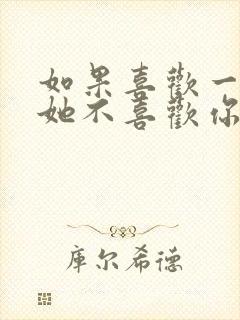 如果喜歡一
她不喜歡你
庫尔希德